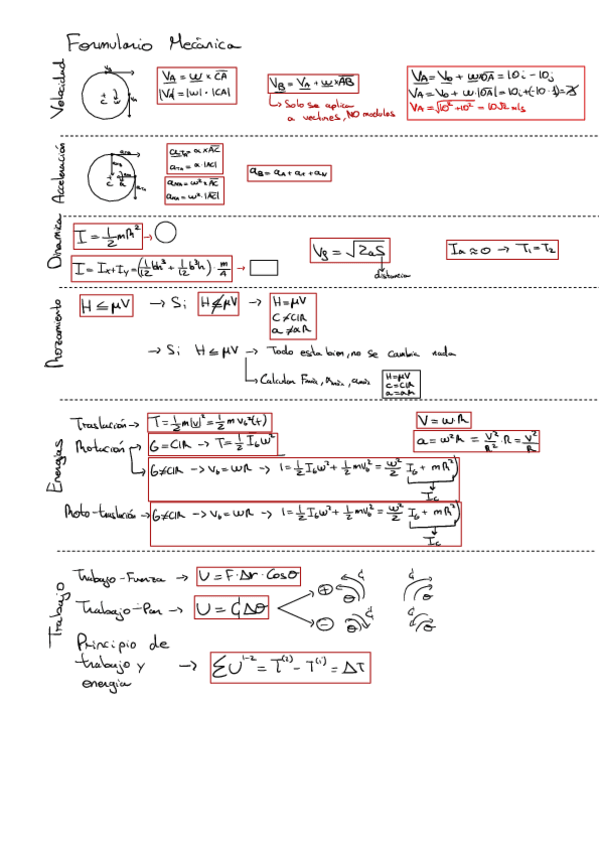 Formulario Mecánica
Velocidad
C
w
V_A
V_A = w × CA
|V_A| = |w| · |CA|
V_B = V_A + w × AB
↳ Solo se aplica
a vectores, NO modulos
V_A = V_0 + w × OA = 10i - 10j
V_A = V_0 + w · |OA| = 10i + (-10·1) =
V_A = √10² + 10² = 10√2 m/s
Aceleración
a = α × AC
a = α · |AC|
a = w² × AC
a = w² · |AC|
a_B = a_A + a_t + a_N
Dinámica
I = 1/2 mR² →
I = I_x + I_y = (1/12 bh³ + 1/12 b³h) · m/A →
V_g = √2aS
distancia
I_a ≈ 0 → T_1 = T_2
Rozamiento
H ≤ μV → Si H ≰ μV → H = μV
C ≠ CIR
a ≠ αR
→ Si H ≤ μV → Todo esta bien, no se cambia nada
↳ Calcular Fmáx, αmáx, amáx
H = μV
C = CIR
a = αR
Energías
Traslación → T = 1/2 m|v|² = 1/2 m v_G²(t)
Rotación → G = CIR → T = 1/2 I_G w²
G ≠ CIR → v_G = wR → T = 1/2 I_G w² + 1/2 m v_G² = w²/2 (I_G + mR²)
I_C
Roto-traslación → G ≠ CIR → v_G = wR → T = 1/2 I_G w² + 1/2 m v_G² = w²/2 (I_G + mR²)
I_C
V = w · R
a = w² R = V²/R² · R = V²/R
Trabajo
Trabajo-Fuerza → U = F · Δr · Cosθ
Trabajo-Par → U = C Δθ
+
-
Principio de
trabajo y
energía
→ ΣU¹⁻² = T⁽²⁾ - T⁽¹⁾ = ΔT